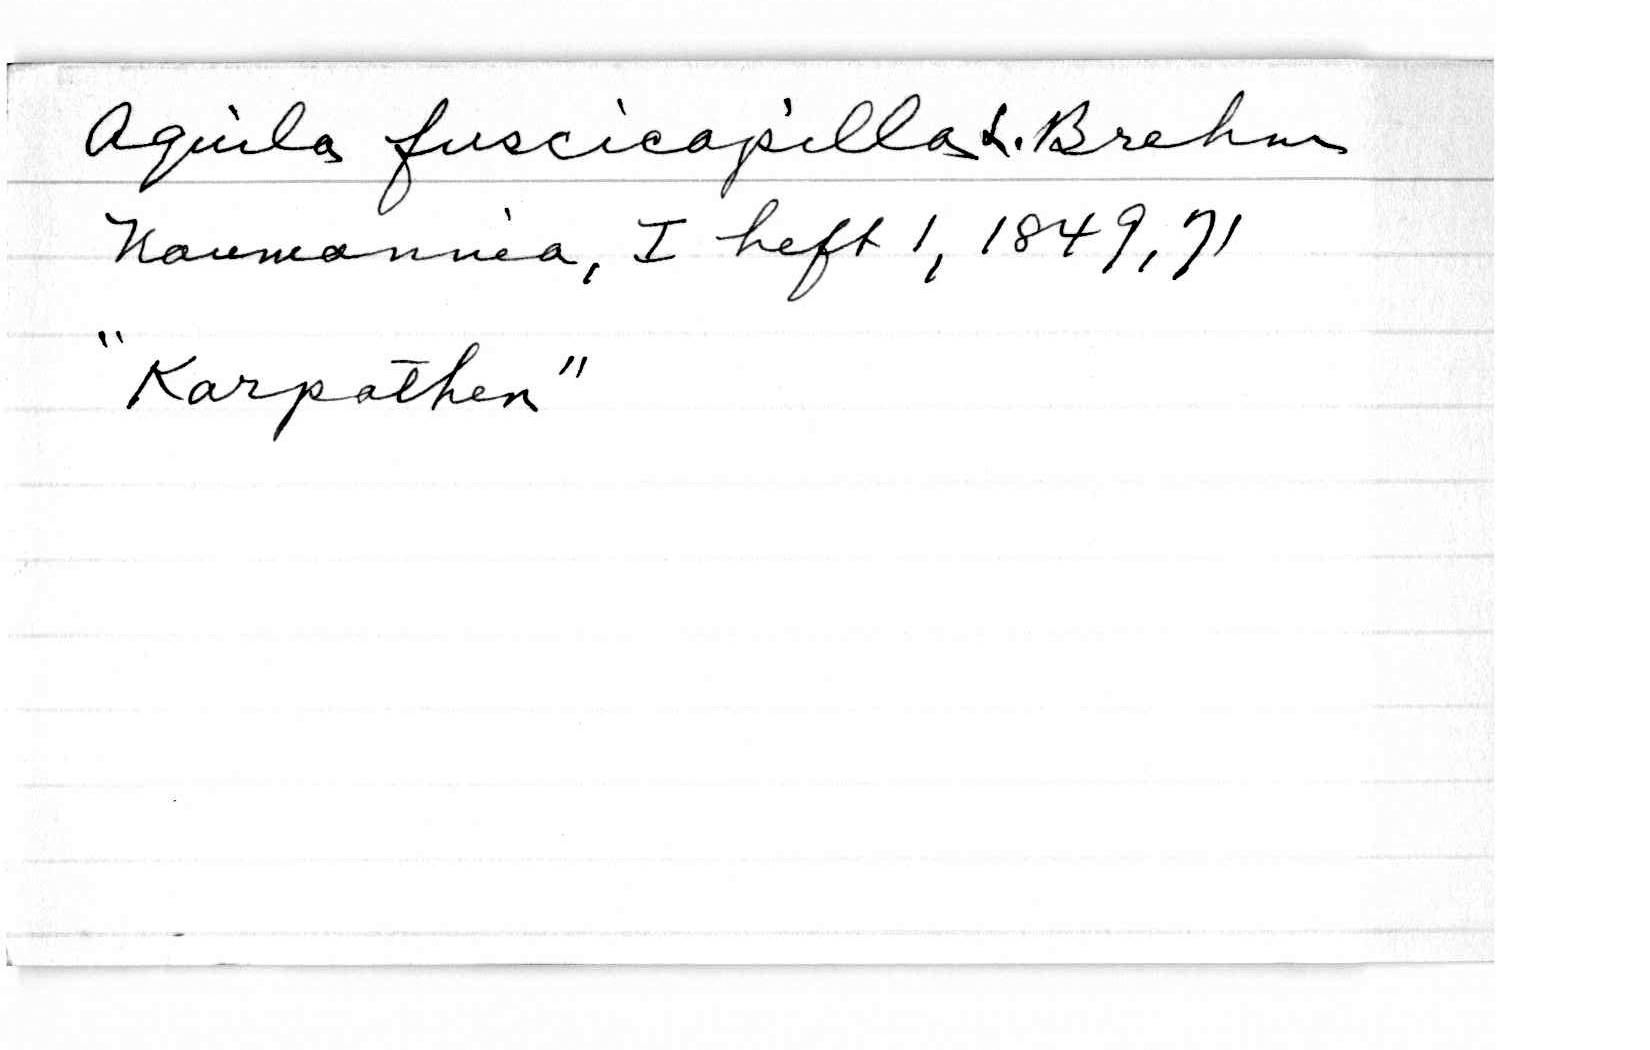 Aquila fuscicapilla L. Brehm
Naumannia, I heft 1, 1849, 71
"Karpathen"